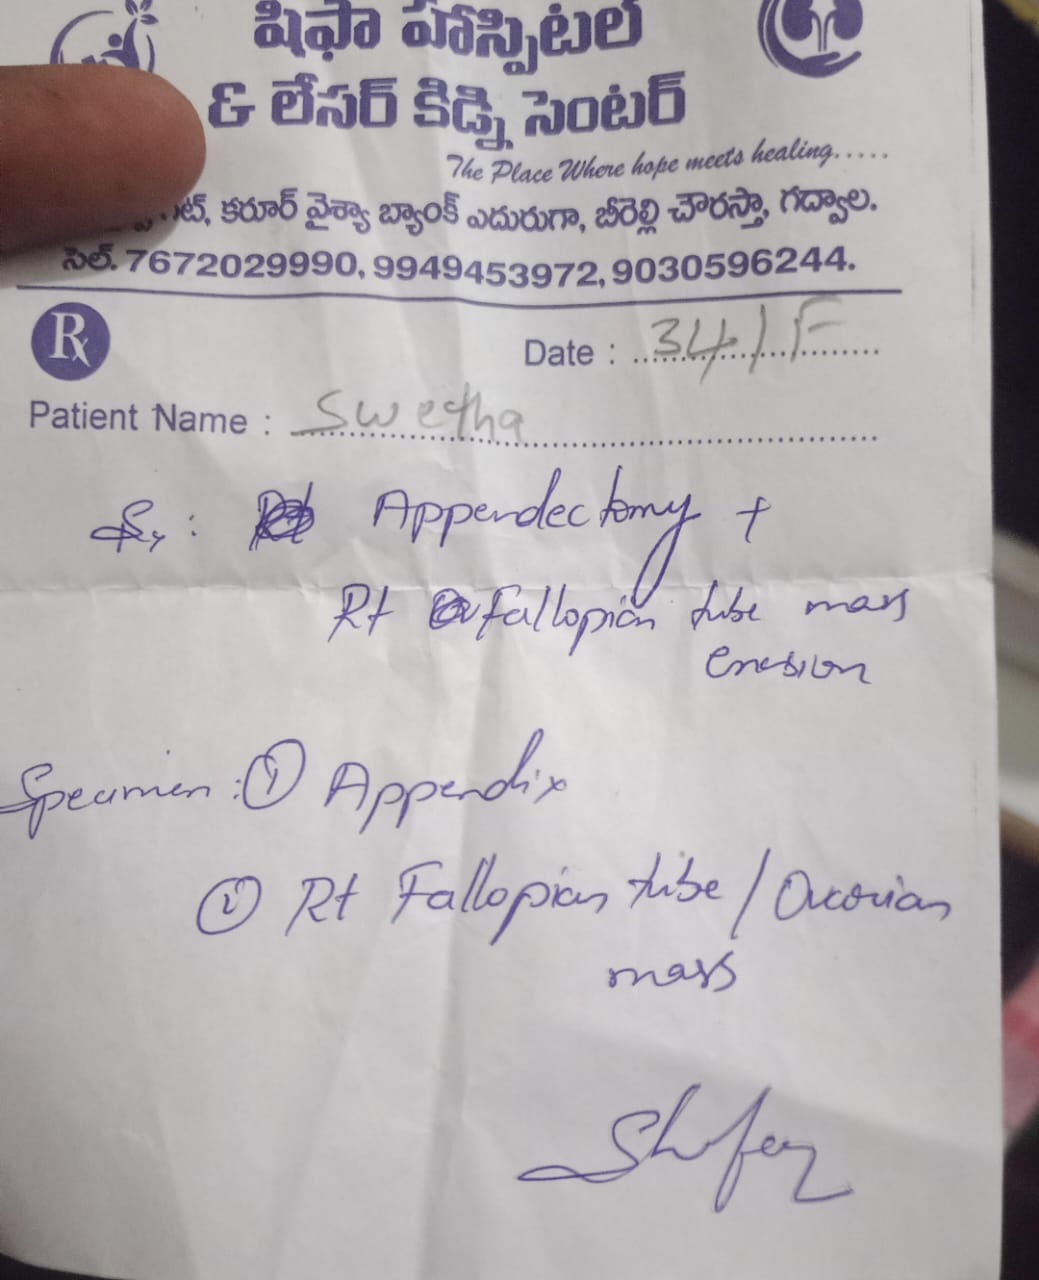 షిఫా హాస్పిటల్
& లేసర్ కిడ్ని సెంటర్
The Place Where hope meets healing.....
కరూర్ వైశ్యా బ్యాంక్ ఎదురుగా, బీరెల్లి చౌరస్తా, గద్వాల.
సెల్. 7672029990, 9949453972, 9030596244.
Rx
Date : 34/F
Patient Name : Swetha
Sy: Appendectomy +
Rt Fallopian tube mass
Specimen: ① Appendix
② Rt Fallopian tube / Ovarian
mass